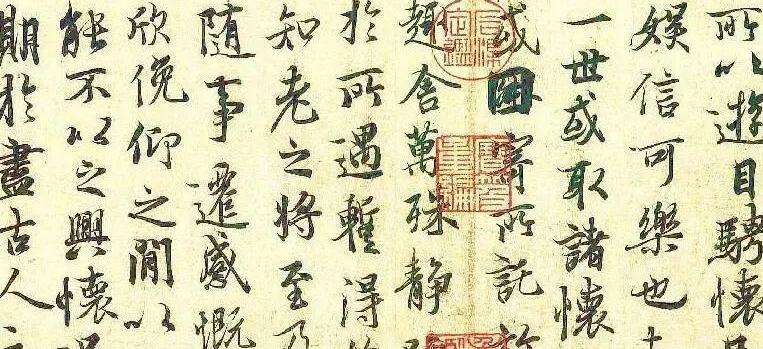 所以遊目騁懷
娛信可樂也
一世或取諸懷
或因寄所託
趣舍萬殊靜
於所遇蹔得
知老之將至及
隨事遷感慨
欣俛仰之閒以
能不以之興懷
期於盡古人